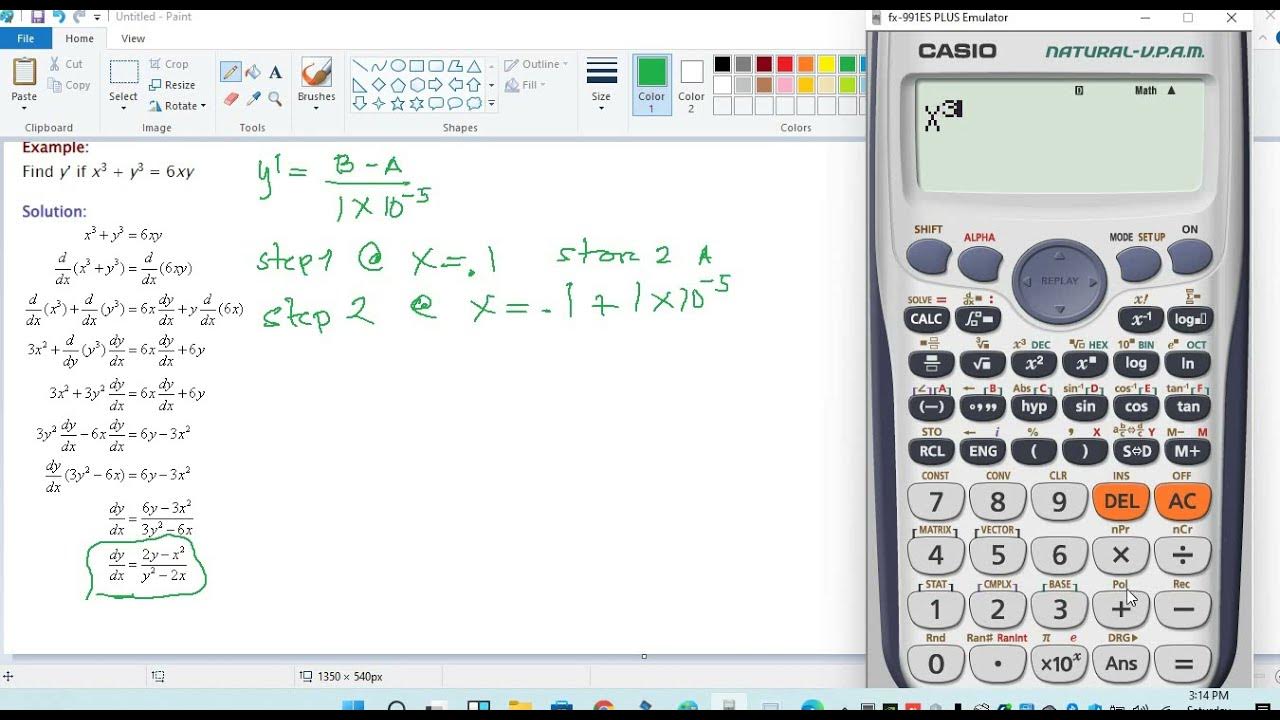 Untitled - Paint
File Home View
Paste
Cut
Copy
Clipboard
Select
Crop
Resize
Rotate
Image
A
Tools
Brushes
Outline
Fill
Shapes
Size
Color 1
Color 2
Colors
Example:
Find y' if x³ + y³ = 6xy
Solution:
x³ + y³ = 6xy
d/dx (x³ + y³) = d/dx (6xy)
d/dx (x³) + d/dx (y³) = 6x dy/dx + y d/dx (6x)
3x² + d/dy (y³) dy/dx = 6x dy/dx + 6y
3x² + 3y² dy/dx = 6x dy/dx + 6y
3y² dy/dx − 6x dy/dx = 6y − 3x²
dy/dx (3y² − 6x) = 6y − 3x²
dy/dx = (6y − 3x²)/(3y² − 6x)
dy/dx = (2y − x²)/(y² − 2x)
y' = (B − A)/(1 × 10⁻⁵)
step 1 @ x = .1 store 2 A
step 2 @ x = .1 + 1 × 10⁻⁵
1350 × 540px
fx-991ES PLUS Emulator
CASIO NATURAL-V.P.A.M.
D Math ▲
X³
SHIFT ALPHA MODE SETUP ON
REPLAY
SOLVE = d/dx : x! Σ=
CALC ∫ x⁻¹ log
³√ x³ DEC ˣ√ HEX 10ˣ BIN eˣ OCT
√ x² x log ln
∠ A ← B Abs C sin⁻¹ D cos⁻¹ E tan⁻¹ F
(−) °,,, hyp sin cos tan
STO ← i % , X a b/c⇔d/c Y M− M
RCL ENG ( ) S⇔D M+
CONST CONV CLR INS OFF
7 8 9 DEL AC
MATRIX VECTOR nPr nCr
4 5 6 × ÷
STAT CMPLX BASE Pol Rec
1 2 3 + −
Rnd Ran# RanInt π e DRG▶
0 . ×10ˣ Ans =
3:14 PM
Saturday